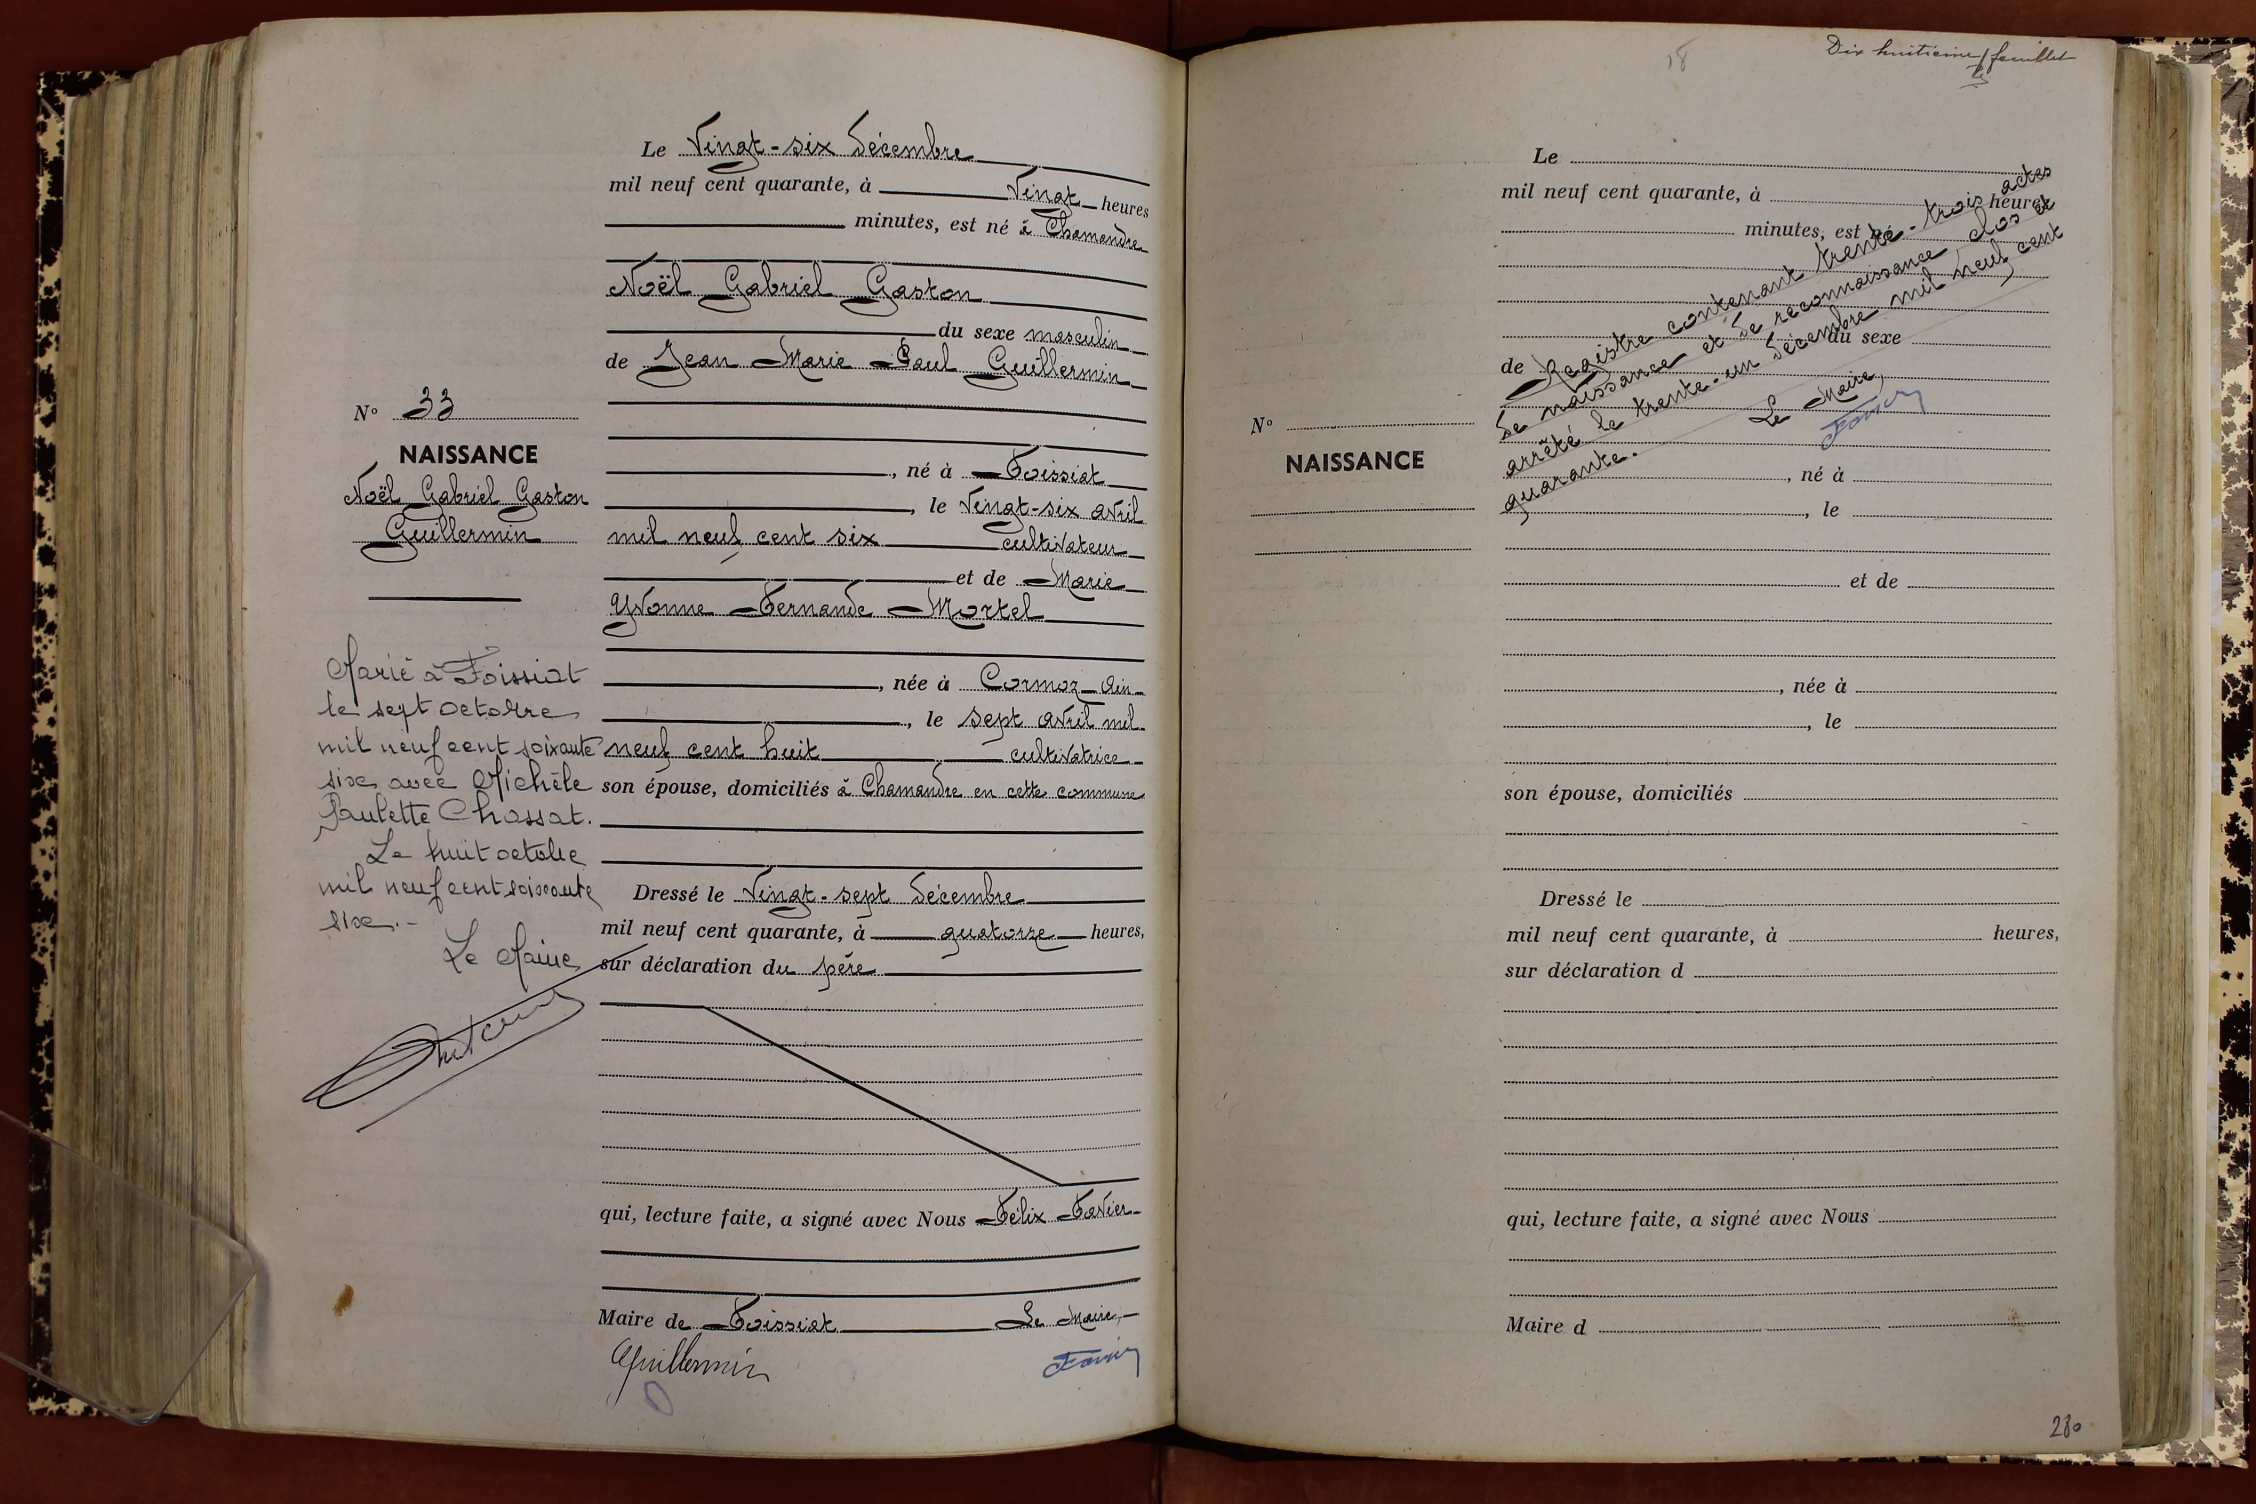 Le Vingt-six décembre
mil neuf cent quarante, à Vingt heures
minutes, est né à Chamandre
Noël Gabriel Gaston
du sexe masculin
de Jean Marie Paul Guillermin
, né à Foissiat
, le Vingt-six avril
mil neuf cent six cultivateur
et de Marie
Yvonne Fernande Mortel
, née à Cormoz Ain
, le sept avril mil
neuf cent huit cultivatrice
son épouse, domiciliés à Chamandre en cette commune
Dressé le Vingt-sept décembre
mil neuf cent quarante, à quatorze heures,
sur déclaration du père
qui, lecture faite, a signé avec Nous Félix Favier
Maire de Foissiat Le Maire,
Guillermin Favier
N° 33
NAISSANCE
Noël Gabriel Gaston
Guillermin
Marié à Foissiat
le sept octobre
mil neuf cent soixante
six avec Michèle
Paulette Chossat.
Le huit octobre
mil neuf cent soixante
six.-
Le Maire
18
Dix huitième feuillet
Le
mil neuf cent quarante, à heures
minutes, est né
du sexe
de
, né à
, le
et de
, née à
, le
son épouse, domiciliés
Dressé le
mil neuf cent quarante, à heures,
sur déclaration d
qui, lecture faite, a signé avec Nous
Maire d
Registre contenant trente-trois actes
de naissance et de reconnaissance clos et
arrêté le trente-un décembre mil neuf cent
quarante.
Le Maire,
Favier
N°
NAISSANCE
280